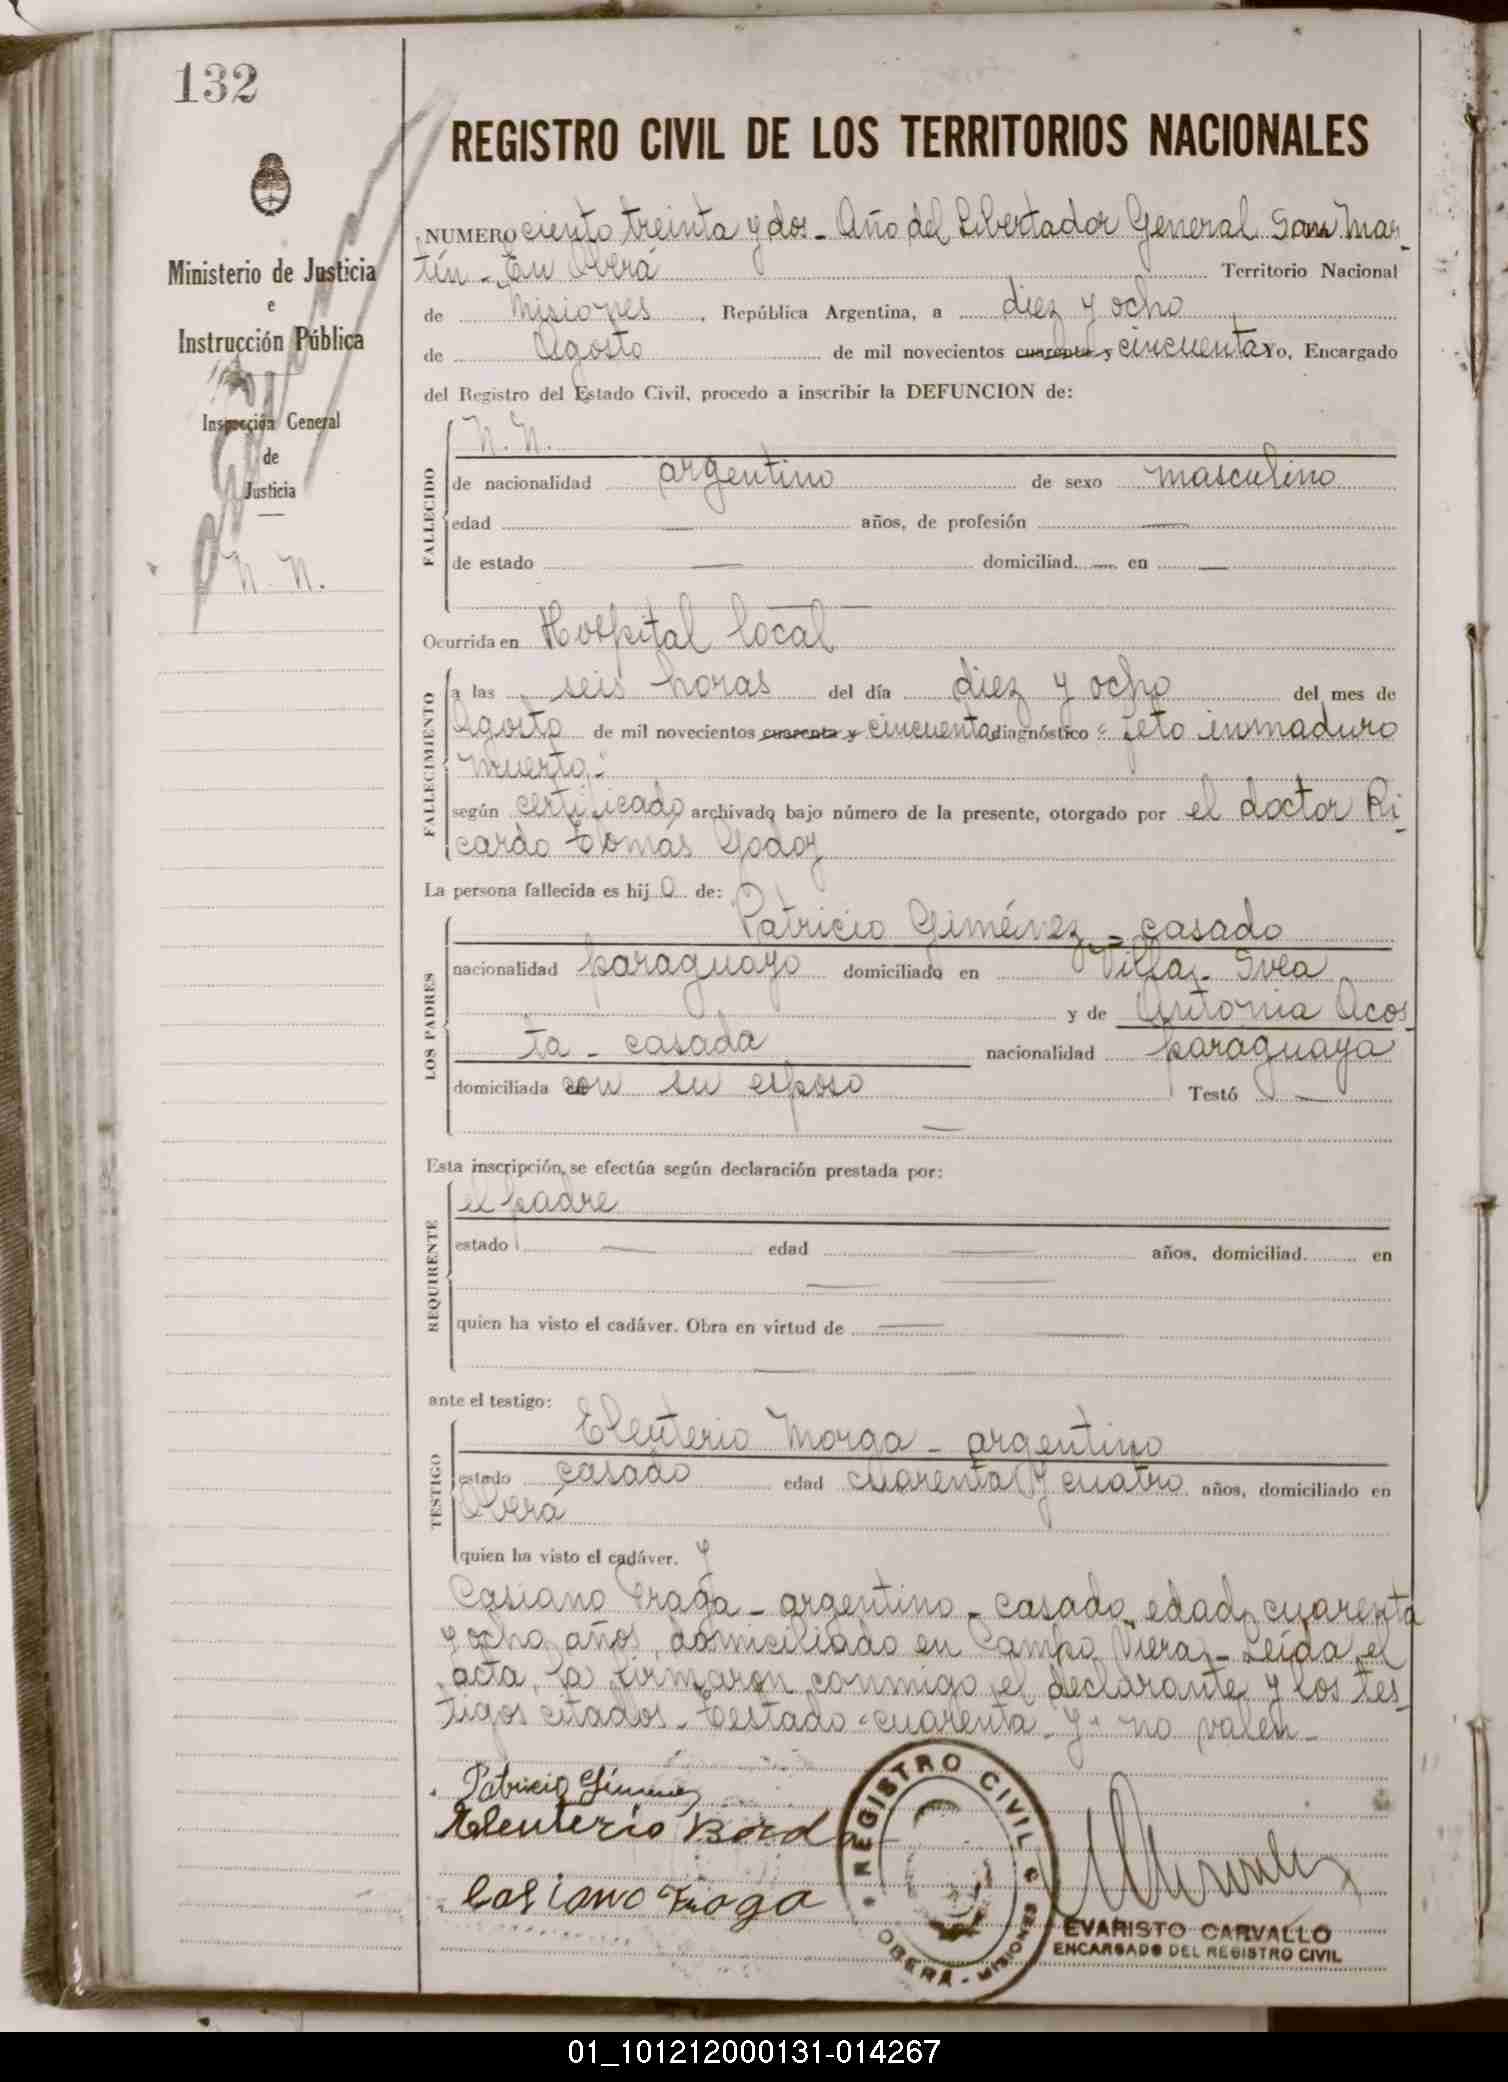 132
REGISTRO CIVIL DE LOS TERRITORIOS NACIONALES
Ministerio de Justicia
e
Instrucción Pública
Inspección General
de
Justicia
N. N.
NUMERO ciento treinta y dos - Año del Libertador General San Mar-
tín - En Oberá Territorio Nacional
de Misiones, República Argentina, a diez y ocho
de Agosto de mil novecientos cuarenta y cincuenta Yo, Encargado
del Registro del Estado Civil, procedo a inscribir la DEFUNCION de:
FALLECIDO
N. N.
de nacionalidad argentino de sexo masculino
edad — años, de profesión —
de estado — domiciliad — en —
Ocurrida en Hospital local
FALLECIMIENTO
a las seis horas del día diez y ocho del mes de
Agosto de mil novecientos cuarenta y cincuenta diagnóstico: feto inmaduro
muerto.
según certificado archivado bajo número de la presente, otorgado por el doctor Ri-
cardo Tomás Godoy
La persona fallecida es hijo de:
LOS PADRES
Patricio Giménez - casado
nacionalidad paraguayo domiciliado en Villa Svea
y de Antonia Acos-
ta - casada nacionalidad paraguaya
domiciliada con su esposo Testó —
Esta inscripción, se efectúa según declaración prestada por:
REQUIRENTE
el padre
estado — edad — años, domiciliad en
quien ha visto el cadáver. Obra en virtud de —
ante el testigo:
TESTIGO
Eleuterio - argentino
estado casado edad cuarenta y cuatro años, domiciliado en
Oberá
quien ha visto el cadáver. y
Casiano Fraga - argentino - casado, edad cuarenta
y ocho años, domiciliado en Campo Viera - Leída el
acta, la firmaron conmigo el declarante y los tes-
tigos citados. Testado "cuarenta y" no valen -
Patricio Gimenez
Eleuterio
Casiano Fraga
REGISTRO CIVIL
OBERÁ - MISIONES
EVARISTO CARVALLO
ENCARGADO DEL REGISTRO CIVIL
01_101212000131-014267